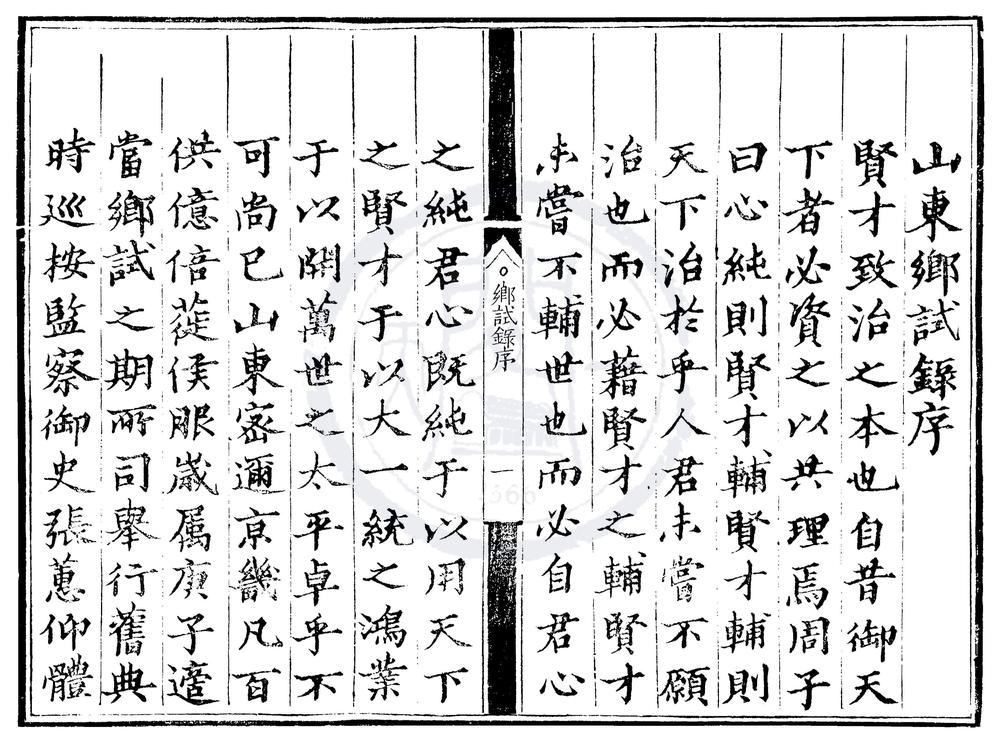 山東鄉試錄序
賢才致治之本也自昔御天
下者必資之以共理焉周子
曰心純則賢才輔賢才輔則
天下治於乎人君未嘗不願
治也而必藉賢才之輔賢才
未嘗不輔世也而必自君心
鄉試錄序
一
之純君心既純于以用天下
之賢才于以大一統之鴻業
于以開萬世之太平卓乎不
可尚已山東密邇京畿凡百
供億倍蓰侯服歲屬庚子適
當鄉試之期所司舉行舊典
時巡按監察御史張蕙仰體